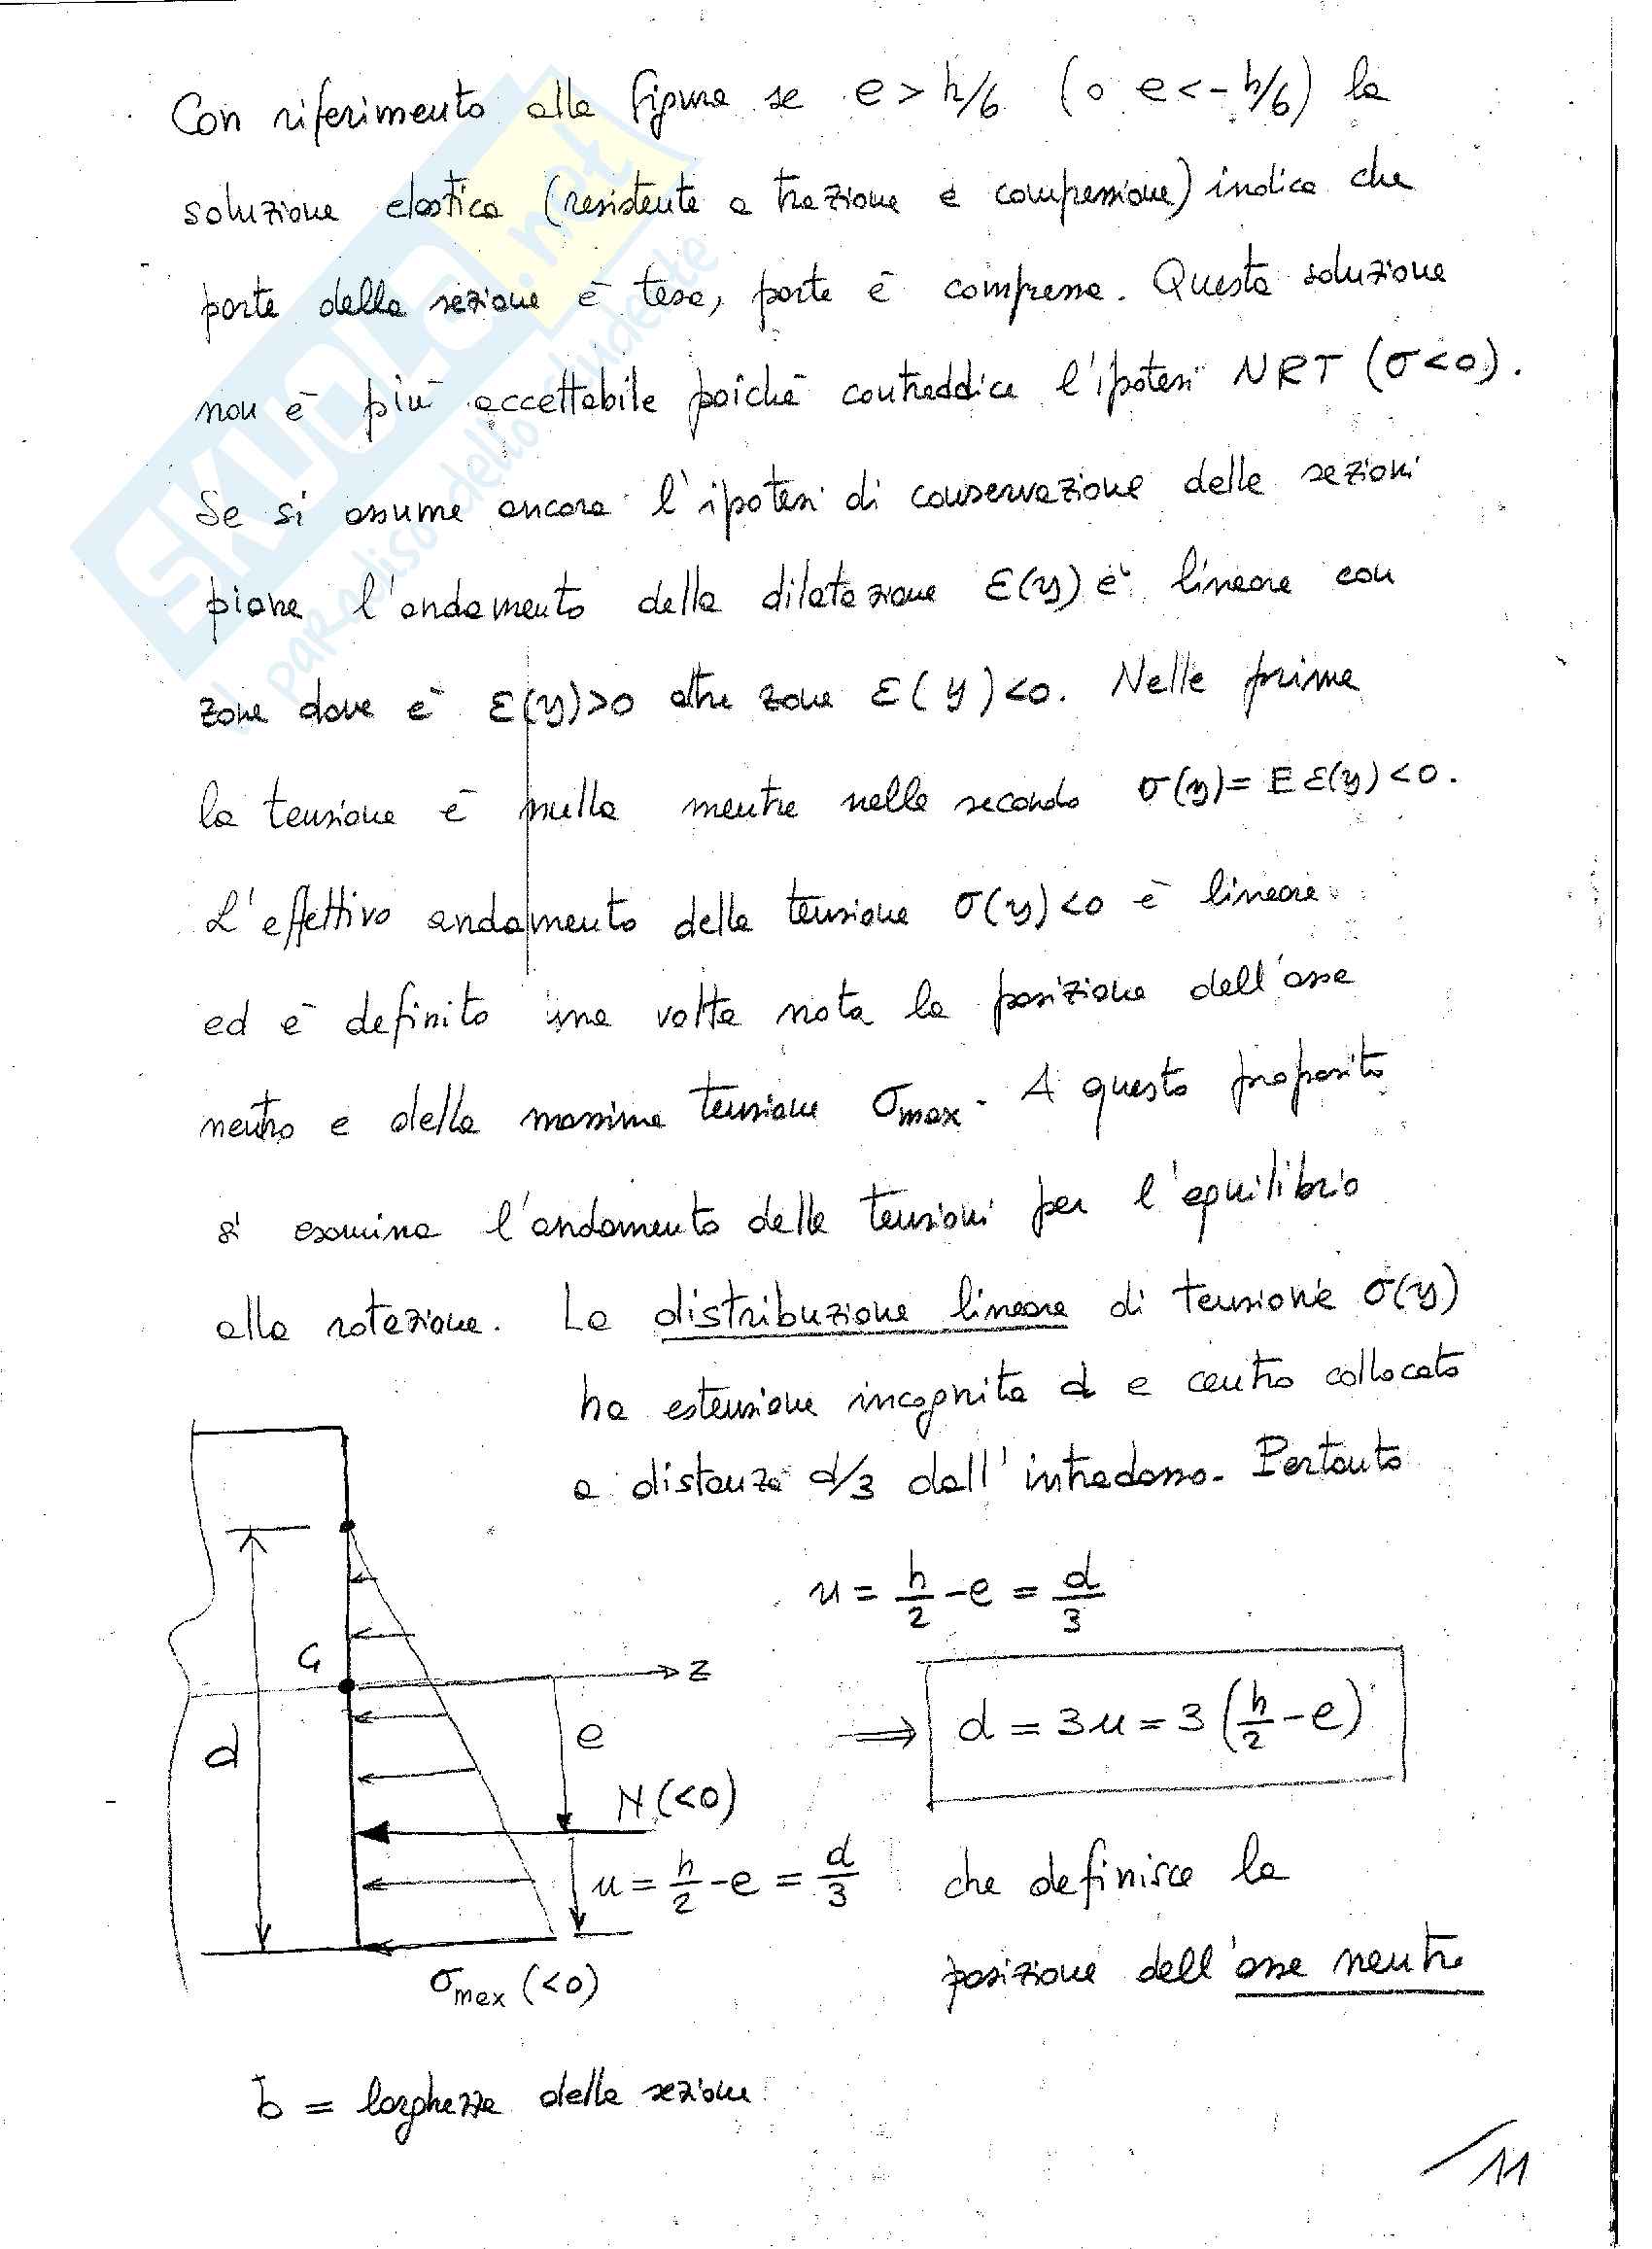 Con riferimento alla figura se e > h/6 (o e < - h/6) la
soluzione elastica (resistente a trazione e compressione) indica che
parte della sezione è tesa, parte è compressa. Questa soluzione
non è più accettabile poiché contraddice l'ipotesi NRT (σ<0).
Se si assume ancora l'ipotesi di conservazione delle sezioni
piane l'andamento della dilatazione ε(y) è lineare con
zone dove è ε(y)>0 altre zone ε(y)<0. Nelle prime
la tensione è nulla mentre nelle seconde σ(y)= E ε(y)<0.
L'effettivo andamento delle tensione σ(y)<0 è lineare
ed è definito una volta nota la posizione dell'asse
neutro e della massima tensione σmax. A questo proposito
si esamina l'andamento delle tensioni per l'equilibrio
alla rotazione. La distribuzione lineare di tensione σ(y)
ha estensione incognita d e centro collocato
a distanza d/3 dall'intradosso. Pertanto
u = h/2 - e = d/3
G
z
⇒ d = 3u = 3 (h/2 - e)
d
e
N (<0)
u = h/2 - e = d/3
che definisce la
posizione dell'asse neutro
σmax (<0)
b = larghezza della sezione
/11
SKUOLA.net
il paradiso dello studente